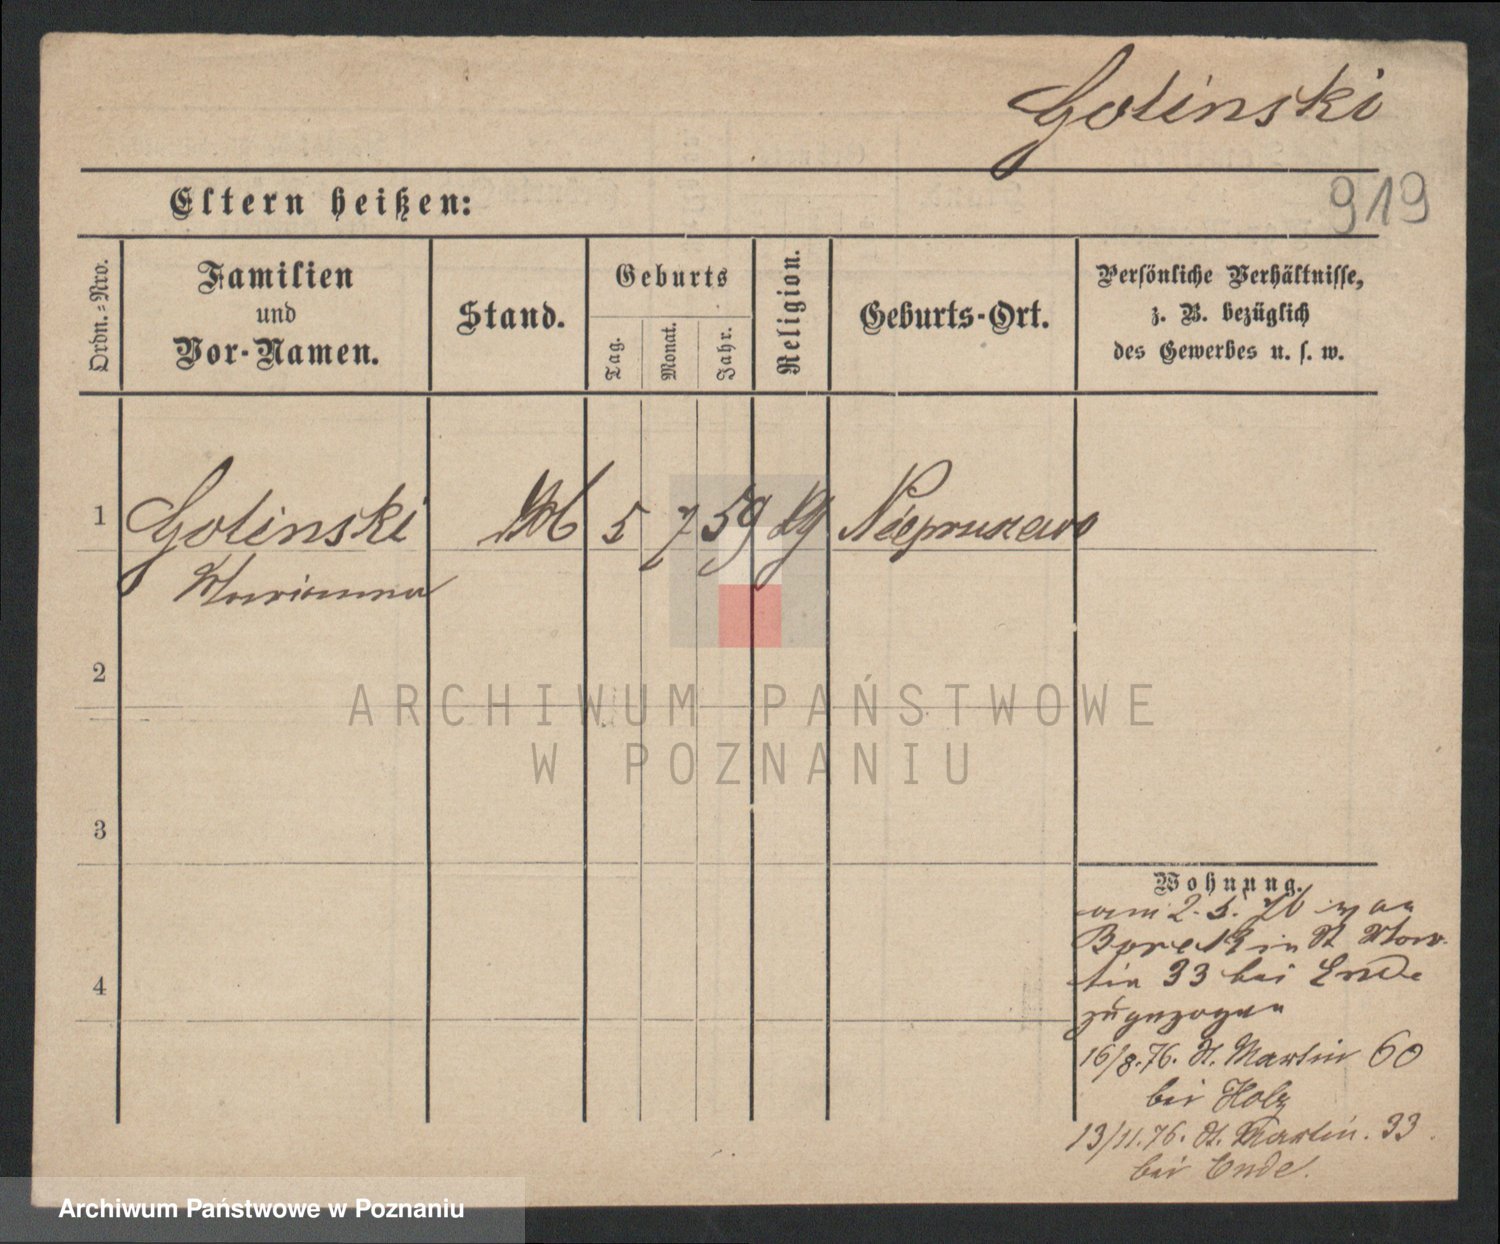 Golinski
919
Eltern heißen:
Ordn.-Nro.
Familien
und
Vor-Namen.
Stand.
Geburts
Tag.
Monat.
Jahr.
Religion.
Geburts-Ort.
Persönliche Verhältnisse,
z. B. bezüglich
des Gewerbes u. s. w.
1 Golinski 5 7 59 Niepruszewo
Marianna
2
ARCHIWUM PAŃSTWOWE
W POZNANIU
3
4
Wohnung.
am 2. 5. 76 von
in St Mar-
tin 33 bei Ende
zugezogen
16/8.76. St. Martin 60
bei Holz
13/11.76. St. Martin. 33.
bei Ende.
Archiwum Państwowe w Poznaniu